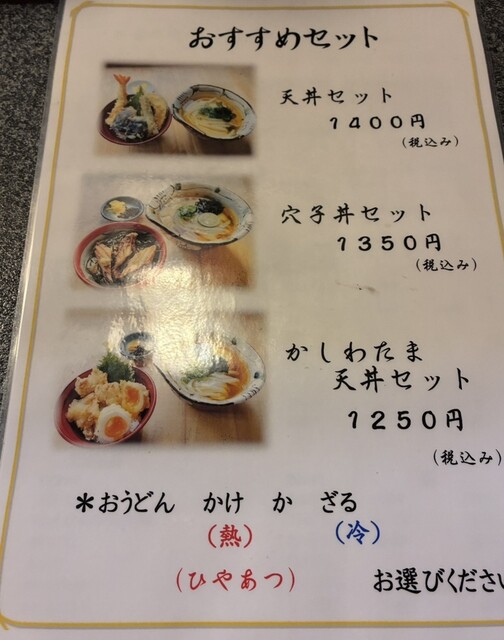 おすすめセット
天丼セット
1400円
(税込み)
穴子丼セット
1350円
(税込み)
かしわたま
天丼セット
1250円
(税込み)
*おうどん かけ か ざる
(熱) (冷)
(ひやあつ) お選びくださ